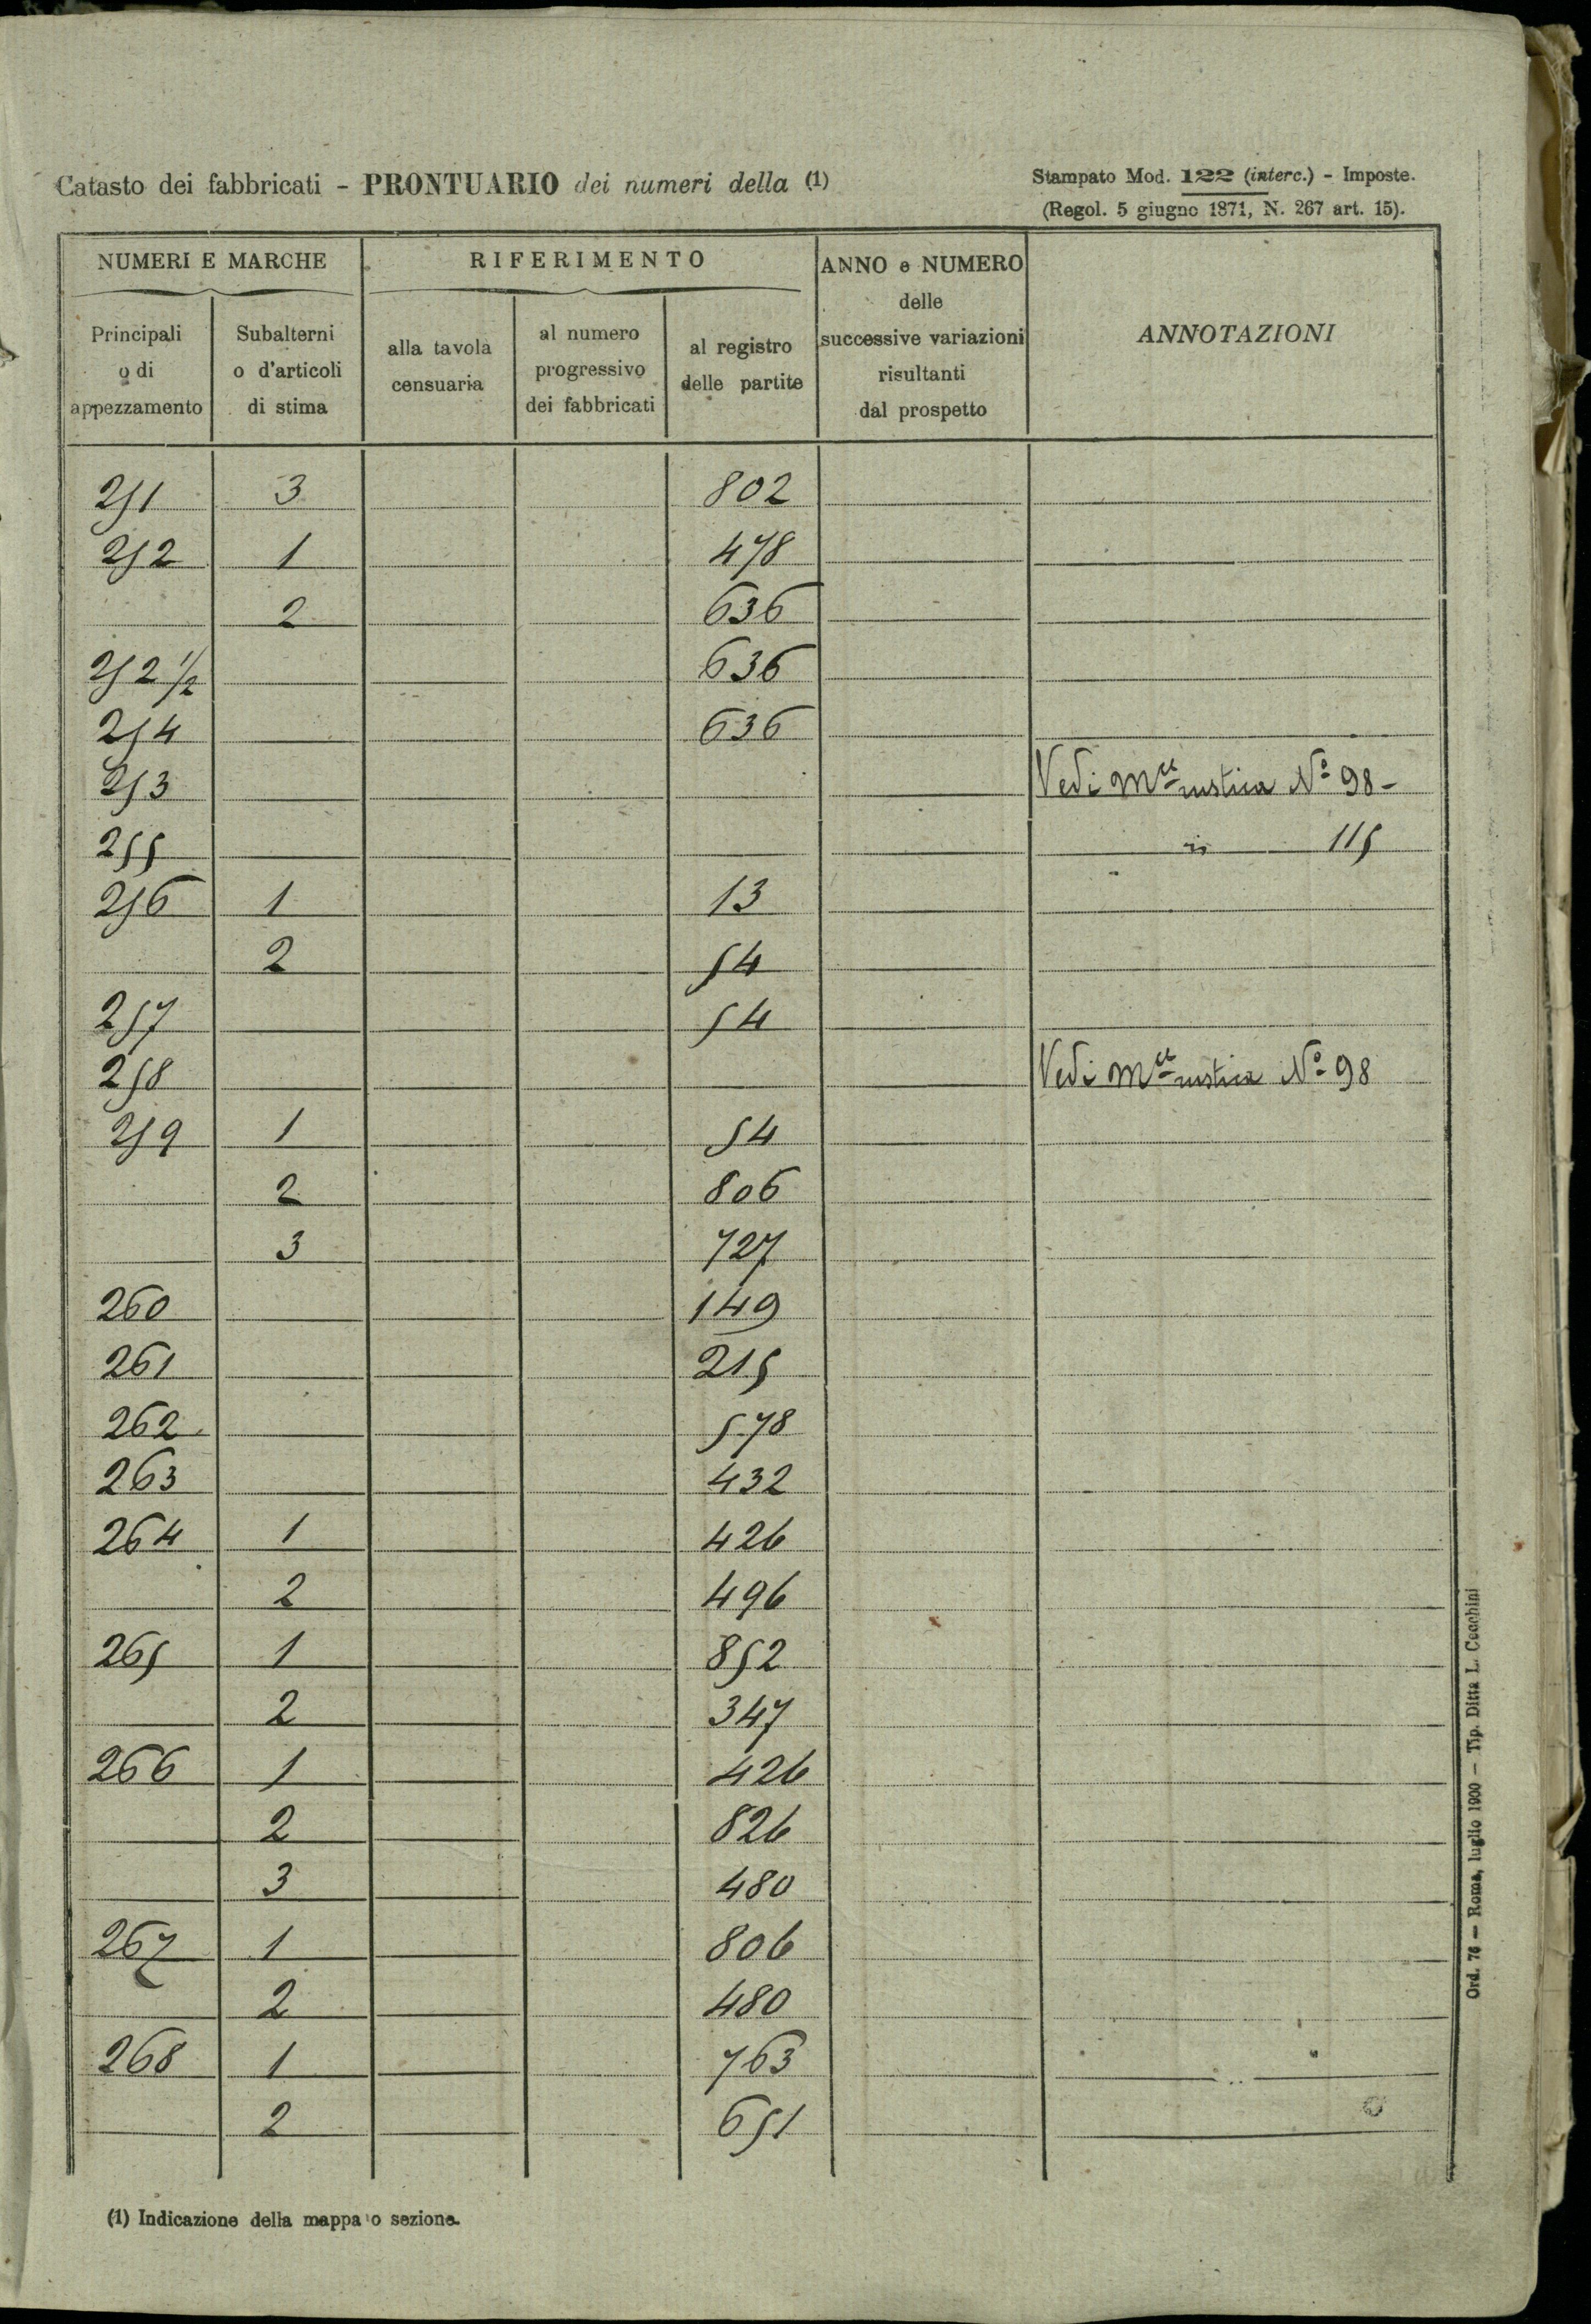 Catasto dei fabbricati - PRONTUARIO dei numeri della (1)
Stampato Mod. 122 (interc.) - Imposte.
(Regol. 5 giugno 1871, N. 267 art. 15).
NUMERI E MARCHE
RIFERIMENTO
ANNO e NUMERO
delle
successive variazioni
risultanti
dal prospetto
ANNOTAZIONI
Principali
o di
appezzamento
Subalterni
o d'articoli
di stima
alla tavola
censuaria
al numero
progressivo
dei fabbricati
al registro
delle partite
251 3 802
252 1 478
2 636
252 1/2 636
254 636
253 Vedi Mce rustica No 98-
255 " 115
256 1 13
2 54
257 54
258 Vedi Mce rustica No 98
259 1 54
2 806
3 727
260 149
261 215
262 578
263 432
264 1 426
2 496
265 1 852
2 347
266 1 426
2 826
3 480
267 1 806
2 480
268 1 763
2 651
(1) Indicazione della mappa o sezione.
Ord. 76 — Roma, luglio 1900 — Tip. Ditta L. Cecchini